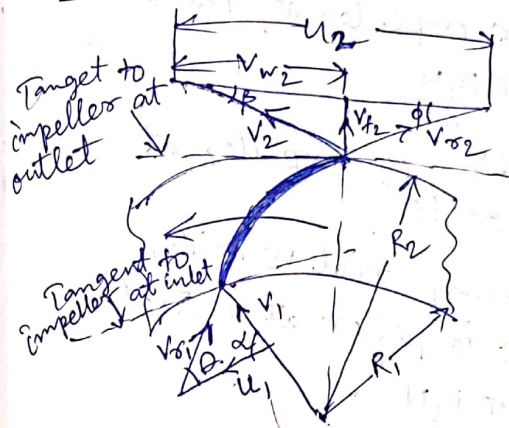 U2
Vw2
Tanget to
impeller at
outlet
β
V2
Vf2
ϕ
Vr2
R2
Tangent to
impeller at inlet
V1
Vr1
θ
α
U1
R1